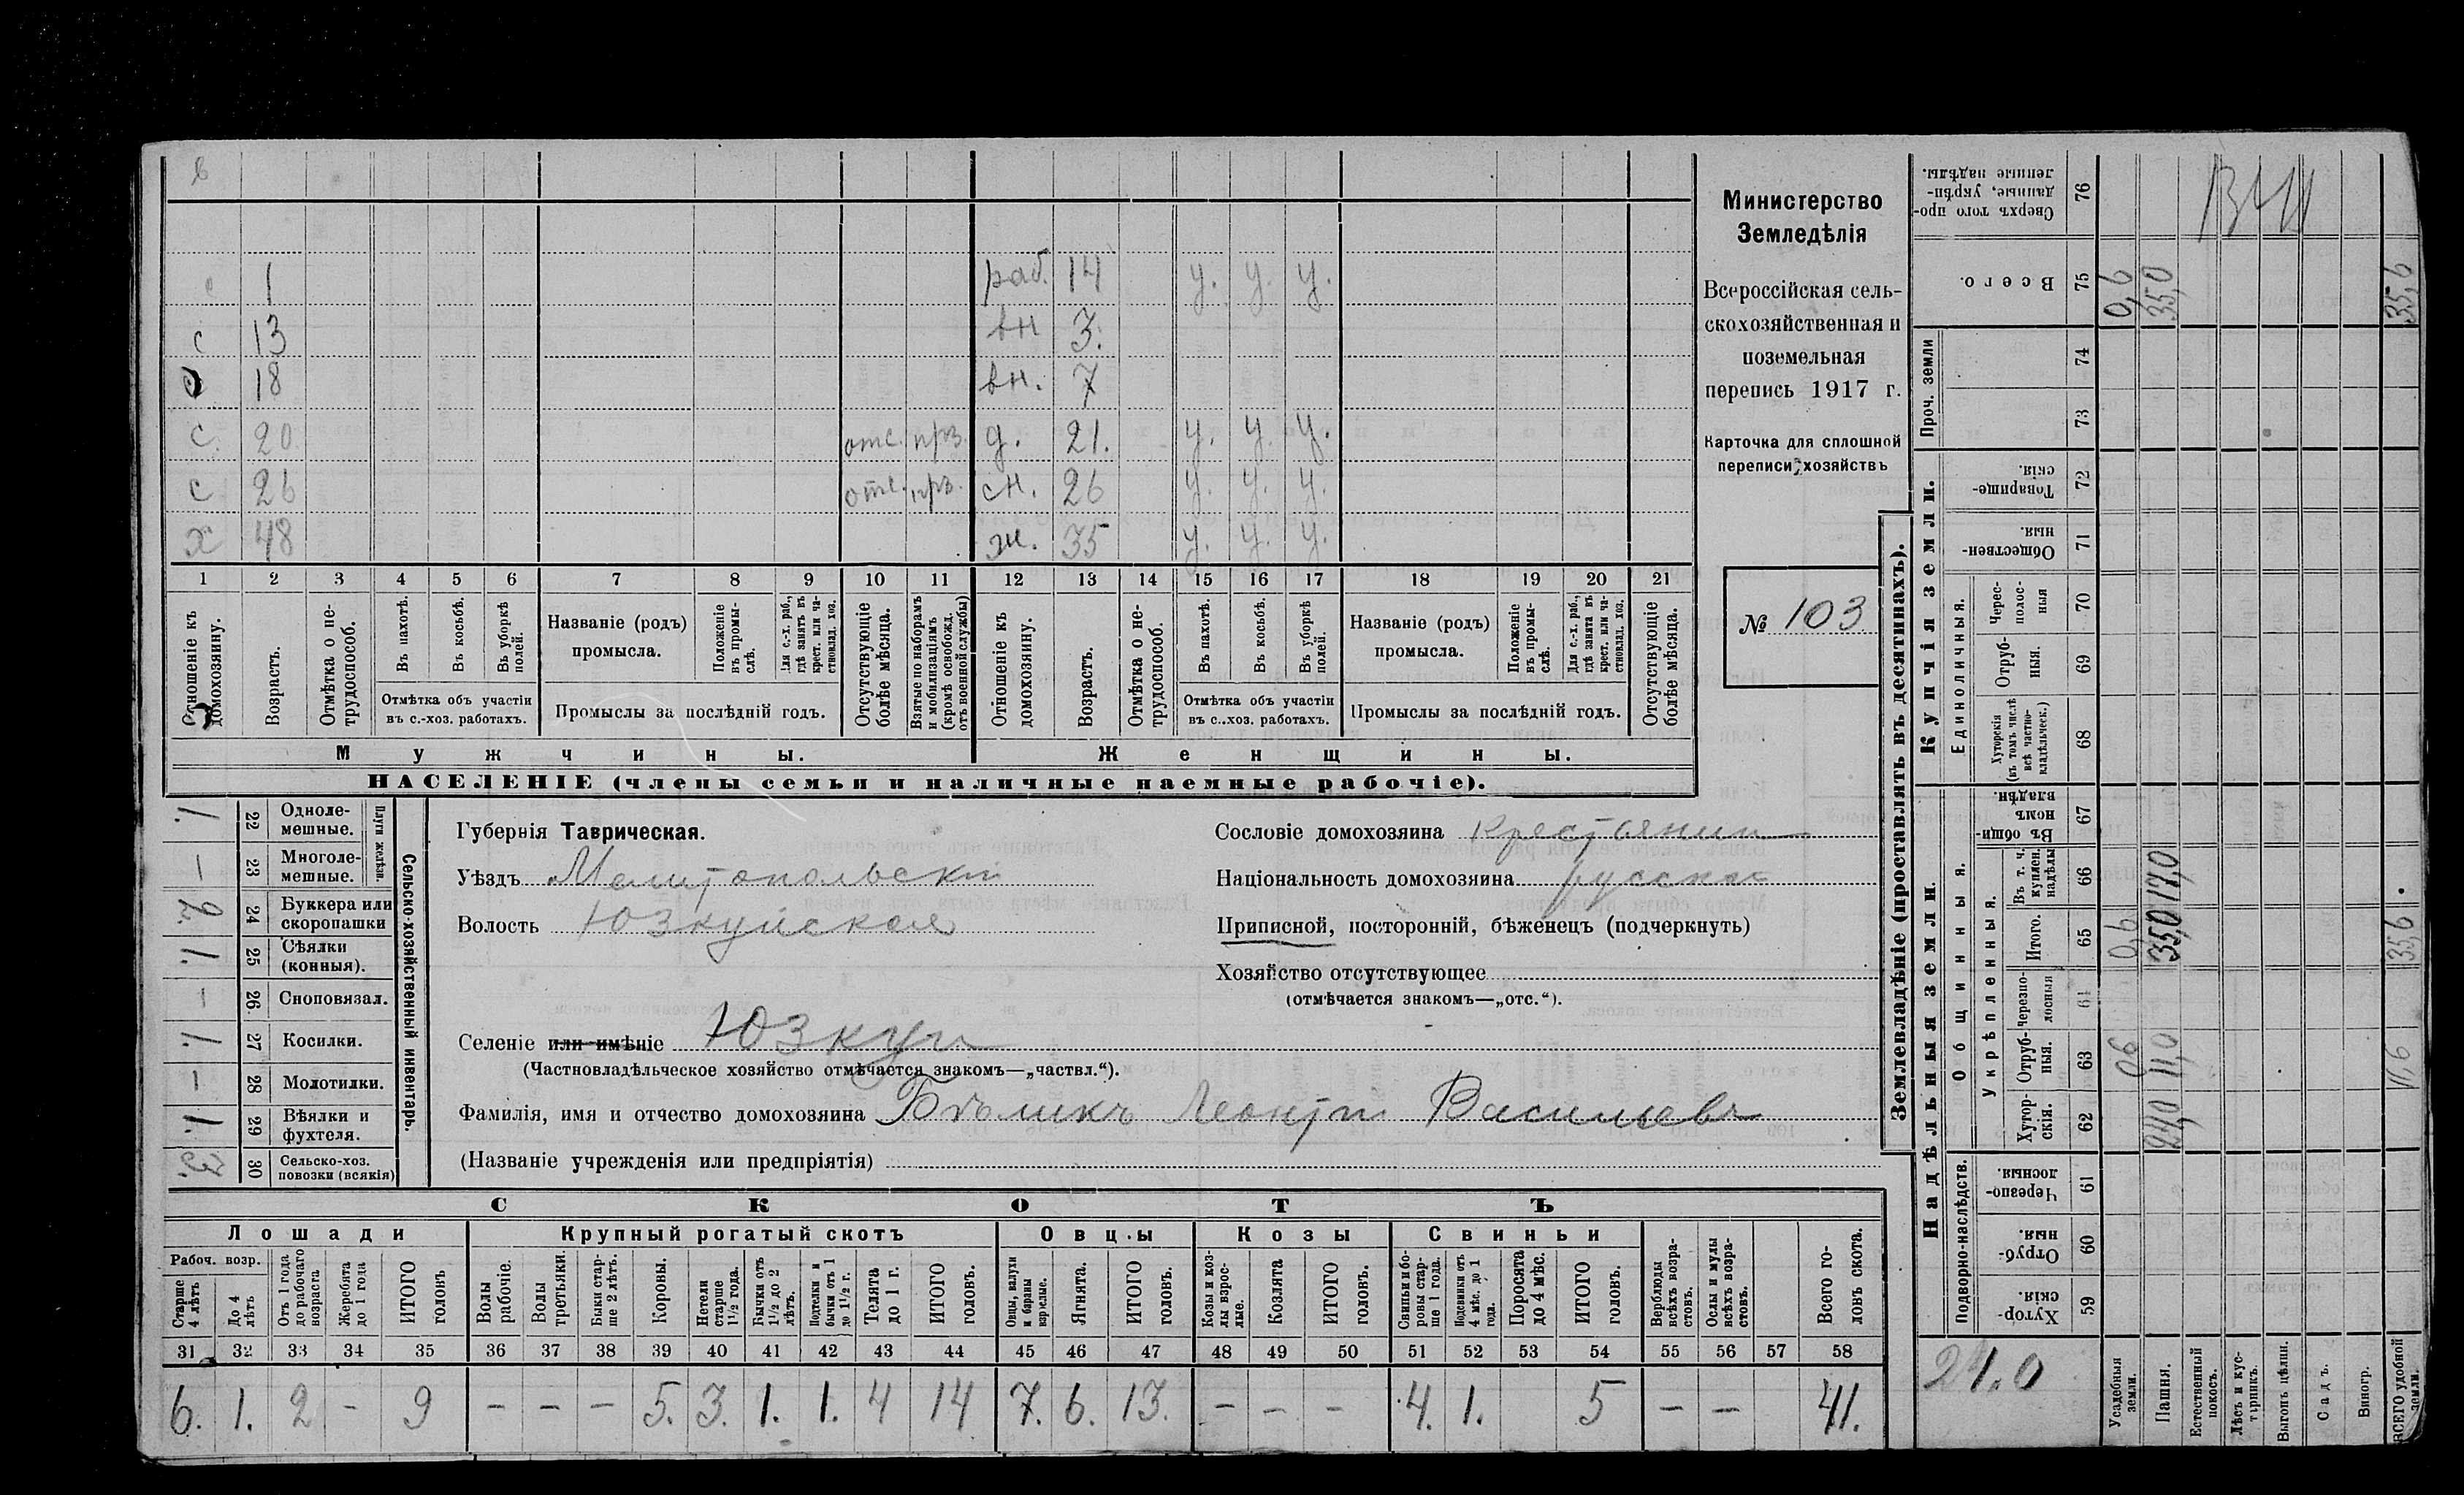 в
с 1 раб. 14 у. у. у.
с 13 вн 3.
с 18 вн. 7
с. 20 отс. прз. д. 21. у. у. у.
с 26 отс. прз. сн. 26 у. у. у.
х 48 ж. 35 у. у. у.
1 2 3 4 5 6 7 8 9 10 11 12 13 14 15 16 17 18 19 20 21
Отношеніе къ домохозяину.
Возрастъ.
Отмѣтка о не-трудоспособ.
Въ пахотѣ.
Въ косьбѣ.
Въ уборкѣ полей.
Отмѣтка объ участіи
въ с.-хоз. работахъ.
Названіе (родъ)
промысла.
Положеніе въ промы-слѣ.
Для с.-х. раб., гдѣ занятъ въ крест. или ча-стновлад. хоз.
Промыслы за послѣдній годъ.
Отсутствующіе болѣе мѣсяца.
Взятые по наборамъ и мобилизаціямъ (кромѣ освобожд. отъ военной службы)
Отношеніе къ домохозяину.
Возрастъ.
Отмѣтка о не-трудоспособ.
Въ пахотѣ.
Въ косьбѣ.
Въ уборкѣ полей.
Отмѣтка объ участіи
въ с.-хоз. работахъ.
Названіе (родъ)
промысла.
Положеніе въ промы-слѣ.
Для с.-х. раб., гдѣ занята въ крест. или ча-стновлад. хоз.
Промыслы за послѣдній годъ.
Отсутствующіе болѣе мѣсяца.
Мужчины. Женщины.
НАСЕЛЕНІЕ (члены семьи и наличные наемные рабочіе).
Министерство
Земледѣлія
Всероссійская сель-
скохозяйственная и
поземельная
перепись 1917 г.
Карточка для сплошной
переписи хозяйствъ
№ 103
1. 22 Одноле-мешные.
— 23 Многоле-мешные.
Плуги желѣзн.
2. 24 Буккера или скоропашки
1. 25 Сѣялки (конныя).
— 26 Сноповязал.
1. 27 Косилки.
— 28 Молотилки.
1. 29 Вѣялки и фухтеля.
3. 30 Сельско-хоз. повозки (всякія)
Сельско-хозяйственный инвентарь.
Губернія Таврическая.
Уѣздъ Мелитопольскій
Волость Юзкуйская
Сословіе домохозяина Крестьянин
Національность домохозяина русская
Приписной, посторонній, бѣженецъ (подчеркнуть)
Хозяйство отсутствующее
(отмѣчается знакомъ—„отс.“).
Селеніе или имѣніе Юзкуи
(Частновладѣльческое хозяйство отмѣчается знакомъ—„частвл.“).
Фамилія, имя и отчество домохозяина Бѣликъ Леонтій Васильевъ
(Названіе учрежденія или предпріятія)
СКОТЪ
Лошади Крупный рогатый скотъ Овцы Козы Свиньи
Рабоч. возр.
Старше 4 лѣтъ
До 4 лѣтъ
Отъ 1 года до рабочаго возраста
Жеребята до 1 года
ИТОГО головъ
Волы рабочіе.
Волы третьяки.
Быки стар-ше 2 лѣтъ.
Коровы.
Нетели старше 1½ года.
Бычки отъ 1½ до 2 лѣтъ.
Подтелки и бычки отъ 1 до 1½ г.
Телята до 1 г.
ИТОГО головъ.
Овцы, валухи и бараны взрослые.
Ягнята.
ИТОГО головъ.
Козы и коз-лы взрос-лые.
Козлята
ИТОГО головъ.
Свиньи и бо-ровы стар-ше 1 года.
Подсвинки отъ 4 мѣс. до 1 года.
Поросята до 4 мѣс.
ИТОГО головъ.
Верблюды всѣхъ возра-стовъ.
Ослы и мулы всѣхъ возра-стовъ.
Всего го-ловъ скота.
31 32 33 34 35 36 37 38 39 40 41 42 43 44 45 46 47 48 49 50 51 52 53 54 55 56 57 58
6. 1. 2 - 9 - - - 5. 3. 1. 1. 4 14 7. 6. 13. - - - 4. 1. 5 - - 41.
Землевладѣніе (проставлять въ десятинахъ).
Сверхъ того про-данные, укрѣп-ленные надѣлы. 76
Всего. 75 0,6 35,0 35,6
Проч. земли
74
73
Купчія земли.
Товарище-скія. 72
Обществен-ныя. 71
Единоличныя.
Черес-полос-ныя 70
Отруб-ныя. 69
Хуторскія (въ томъ числѣ всѣ частно-владѣльческ.) 68
Надѣльныя земли.
Общинныя.
Въ общи-номъ владѣн. 67
Укрѣпленныя.
Въ т. ч. куплен. надѣлы 66 17,0
Итого. 65 0,6 35,0 35,6
Черезпо-лосныя 64
Отруб-ныя. 63 0,6 11,0 11,6
Хутор-скія. 62 24,0
Подворно-наслѣдств.
Черезпо-лосныя 61
Отруб-ныя. 60
Хутор-скія. 59
24.0
Усадебныя земли.
Пашня.
Естественный покосъ.
Лѣсъ и кус-тарникъ.
Выгонъ цѣлин.
Садъ.
Виногр.
ВСЕГО удобной земли.